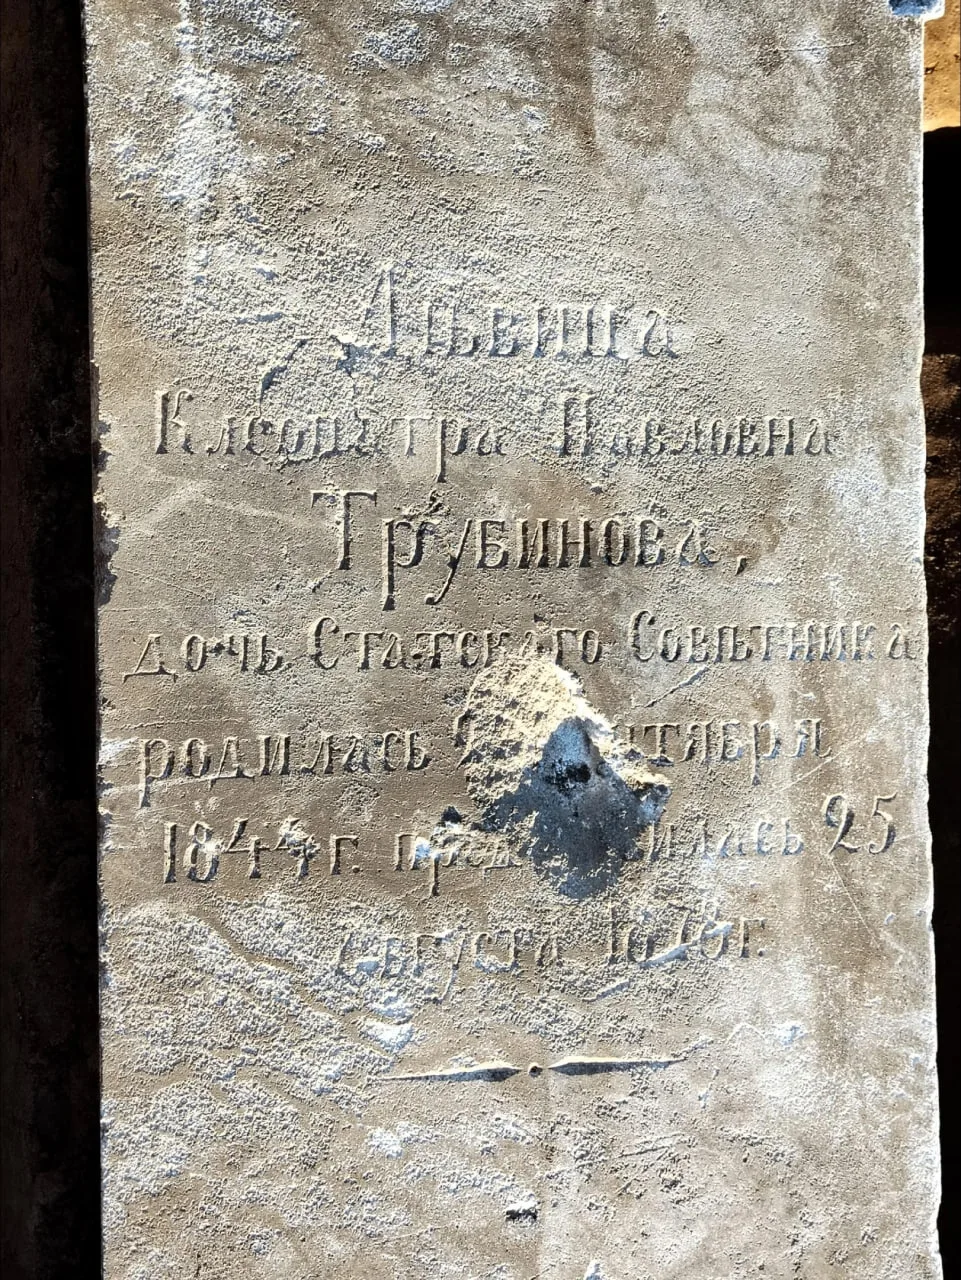 Дѣвица
Клеопатра Павловна
Трубинова,
дочь Статскаго Совѣтника
родилась
1844 г. 25
августа г.